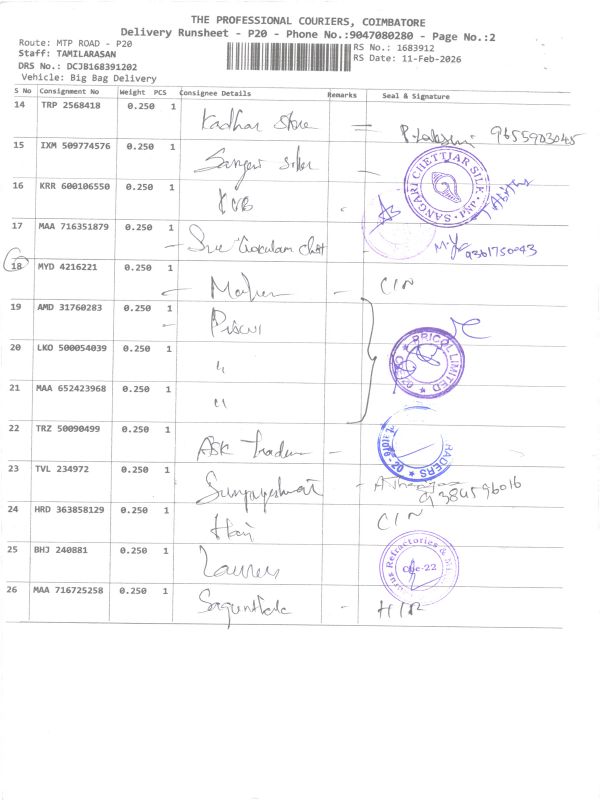 THE PROFESSIONAL COURIERS, COIMBATORE
Delivery Runsheet - P20 - Phone No.:9047080280 - Page No.:2
Route: MTP ROAD - P20
Staff: TAMILARASAN
DRS No.: DCJB168391202
Vehicle: Big Bag Delivery
RS No.: 1683912
RS Date: 11-Feb-2026
S No Consignment No Weight PCS Consignee Details Remarks Seal & Signature
14 TRP 2568418 0.250 1 Kadhar Store 9655903045
15 IXM 509774576 0.250 1 SANGARI CHETTIAR SILK
16 KRR 600106550 0.250 1 KVB
17 MAA 716351879 0.250 1 Sree Gokulam Chit 9361750043
18 MYD 4216221 0.250 1 C/N
19 AMD 31760283 0.250 1 Pricol
20 LKO 500054039 0.250 1 " PRICOL LIMITED
21 MAA 652423968 0.250 1 "
22 TRZ 50090499 0.250 1 ABK Traders - TRADERS
23 TVL 234972 0.250 1 9384596016
24 HRD 363858129 0.250 1 Hari C/N
25 BHJ 240881 0.250 1 Refractories & Cbe-22
26 MAA 716725258 0.250 1 -